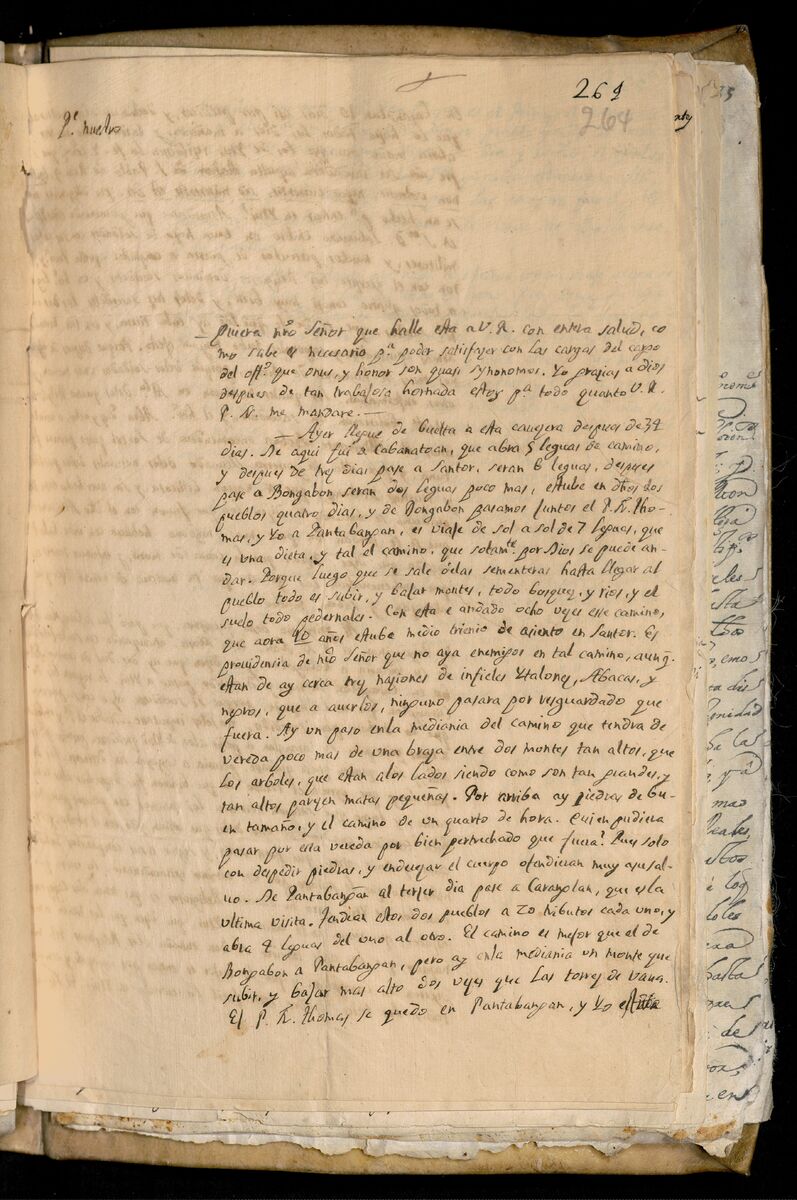 269
264
Pe. nuestro
Quiera nro Señor que halle esta a V. R. con entera salud, co
mo sabe es necesario pa. poder satisfaser con las cargas del cargo
del offo. que onus, y honor son quasi synonomos. Yo grasias a Dios
despues de tan trabajosa hornada estoy pa todo quanto V. R.
P. N. me mandare.—
— Ayer llegue de buelta a esta caveçera despues de 34
dias. De aqui fui a Cabanatoan, que abra 5 leguas de camino,
y despues de trej dias pase a Santor, seran 6 leguas, despues
pase a Bongabon seran dos leguas poco mas, estube en dhos dos
pueblos quatro dias, y de Bongabon pasamos juntos el P. F. Tho-
mas, y Yo a Pantabangan, es viaje de sol a sol de 7 leguas, que
es una dieta, y tal el camino, que solamte. por Dios se puede an-
dar. Porque luego que se sale delas sementeras hasta llegar al
pueblo todo es subir, y bajar montes, todo bosques, y rios, y el
suelo todo pedernales. Con esta e andado ocho vejes ese camino,
que aora 10 años estube medio trienio de asiento en Santor. Es
providensia de nro Señor que no aya enemigos en tal camino, aunq.
estan de ay cerca trej nasiones de infieles Ytalones, Abacas, y
negros, que a averlos, ninguno pasara por resguardado que
fuera. Ay un paso enla mediania del camino que tendra de
vereda poco mas de una braja entre dos montes tan altos, que
los arboles, que estan alos lados siendo como son tan grandes, y
tan altos parejen matas pequeñas. Por arriba ay piedras de bu-
en tamaño, y el camino de un quarto de hora. Quien pudiera
pasar por esta vereda por bien pertrechado que fuera? Pues solo
con despedir piedras, y enderejar el cuerpo ofendieran muy a su sal-
vo. De Pantabangan al terjer dia pase a Caranglan, que es la
ultima visita. Tendran estos dos pueblos a 20 tributos cada uno, y
abra 4 leguas del uno al otro. El camino es mejor que el de
Bongabon a Pantabangan, pero ay enla mediania un monte que
subir, y bajar mas alto dos vejes que las torrej de
El P. F. Thomas se quedo en Pantabangan, y Yo